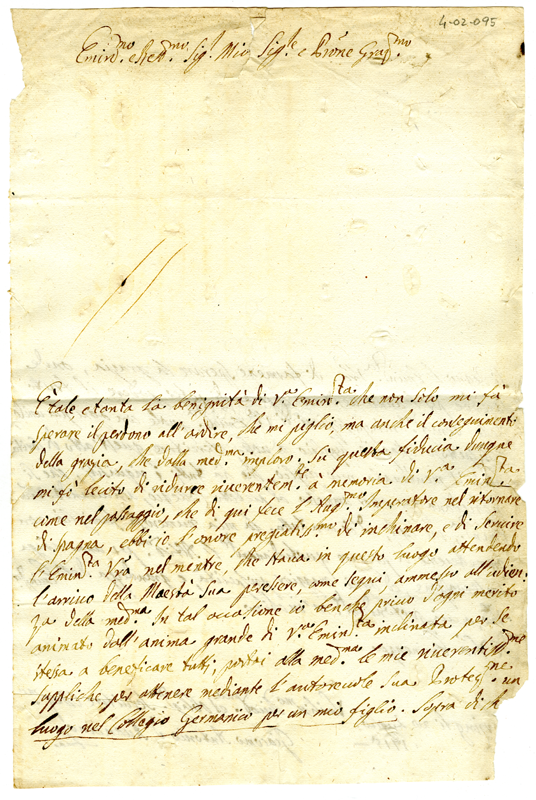 4-02-095
Emin.mo e Rev.mo Sig.r Mio Sig.re e Pron̄e Graz.mo
È tale, e tanta la benignità di V.a Emin.za che non solo mi fà
sperare il perdono all'ardire, che mi piglio, ma anche il conseguimento
della grazia, che dalla med.ma imploro. Su questa fiducia dunque
mi fò lecito di ridurre riverentem.te à memoria di V.a Emin.za
come nel passaggio, che di qui fece l'Aug.mo Imperatore nel ritornare
di Spagna, ebbi io l'onore pregiatiss.mo di inchinare, e di servire
l'Emin.za Vr̄a nel mentre, che stava in questo luogo attendendo
l'arrivo della Maestà Sua per essere, come seguì, ammesso all'udien-
za della med.ma In tal occasione io benche privo d'ogni merito
animato dall'anima grande di V.a Emin.za inclinata per se
stessa a beneficare tutti, portai alla med.ma le mie riverentiss.me
suppliche, per ottenere mediante l'autorevole sua Protez.ne un
luogo nel Collegio Germanico per un mio figlio. Sopra di ch